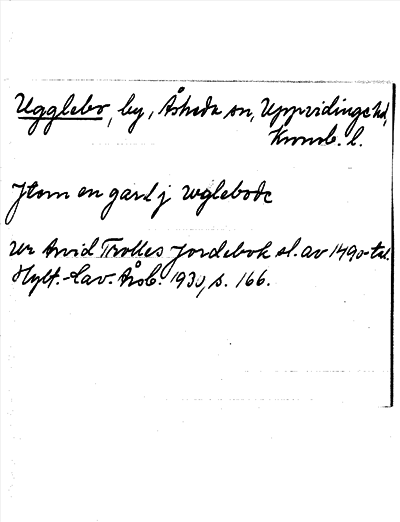 Ugglebo, by, Åsheda sn, Uppvidinge hd,
Kronob. l.
Jtem en gard j vglebode
Ur Arvid Trolles Jordebok sl. av 1490-tal.
Hylt.-Cav. Årsb. 1930, s. 166.